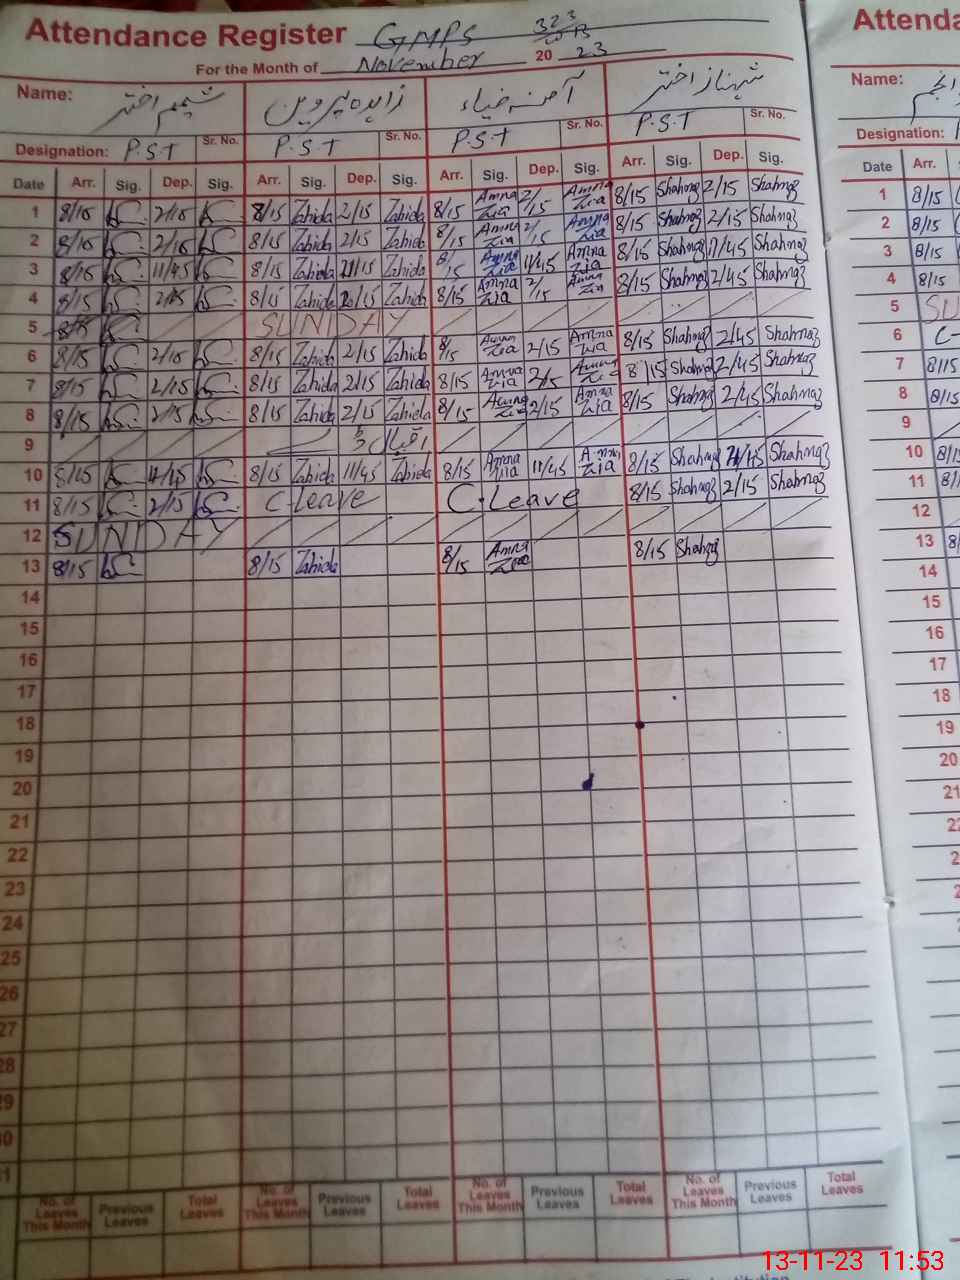 Attendance Register GMPS 323
For the Month of November 2023
Name: شمیم اختر زاہدہ پروین آمنہ ضیاء شہناز اختر
Designation: P.S.T Sr. No. P.S.T Sr. No. P.S.T Sr. No. P.S.T Sr. No.
Date Arr. Sig. Dep. Sig. Arr. Sig. Dep. Sig. Arr. Sig. Dep. Sig. Arr. Sig. Dep. Sig.
1 8/15 2/15 8/15 Zahida 2/15 Zahida 8/15 Amna Zia 2/15 Amna Zia 8/15 Shahnaz 2/15 Shahnaz
2 8/15 2/15 8/15 Zahida 2/15 Zahida 8/15 Amna Zia 2/15 Amna Zia 8/15 Shahnaz 2/15 Shahnaz
3 8/15 11/45 8/15 Zahida Zahida 8/15 Amna Zia 11/45 Amna Zia 8/15 Shahnaz 11/45 Shahnaz
4 8/15 2/15 8/15 Zahida 2/15 Zahida 8/15 Amna Zia 2/15 Amna Zia 8/15 Shahnaz 2/45 Shahnaz
5 8/15 SUNDAY
6 8/15 2/15 8/15 Zahida 2/15 Zahida 8/15 Amna Zia 2/15 Amna Zia 8/15 Shahnaz 2/45 Shahnaz
7 8/15 2/15 8/15 Zahida 2/15 Zahida 8/15 Amna Zia 2/15 Amna Zia 8/15 Shahnaz 2/45 Shahnaz
8 8/15 2/15 8/15 Zahida 2/15 Zahida 8/15 Amna Zia 2/15 Amna Zia 8/15 Shahnaz 2/45 Shahnaz
9 اقبال ڈے
10 8/15 11/45 8/15 Zahida 11/45 Zahida 8/15 Amna Zia 11/45 Amna Zia 8/15 Shahnaz Shahnaz
11 8/15 2/15 C-Leave C-Leave 8/15 Shahnaz 2/15 Shahnaz
12 SUNDAY
13 8/15 8/15 Zahida 8/15 Amna Zia 8/15 Shahnaz
14
15
16
17
18
19
20
21
22
23
24
25
26
27
28
29
30
31
No. of Leaves This Month Previous Leaves Total Leaves No. of Leaves This Month Previous Leaves Total Leaves No. of Leaves This Month Previous Leaves Total Leaves No. of Leaves This Month Previous Leaves Total Leaves
Name:
Designation:
Date Arr.
1 8/15
2 8/15
3 8/15
4 8/15
5
6
7 8/15
8 8/15
9
10
11
12
13
14
15
16
17
18
19
20
21
22
13-11-23 11:53